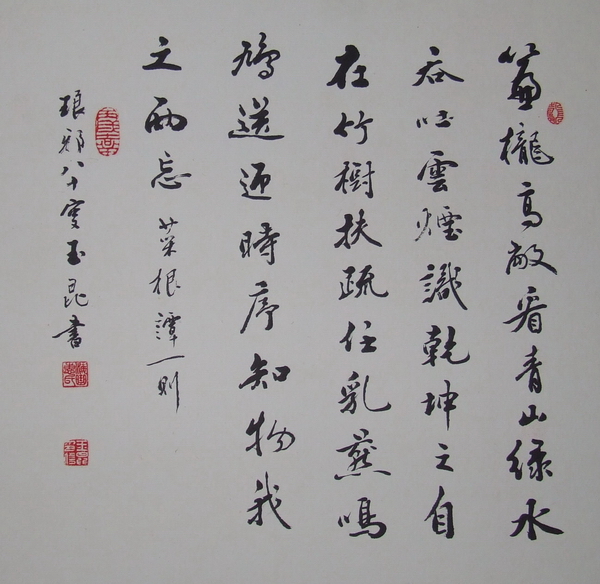 簾櫳高敞看青山綠水
吞吐雲煙識乾坤之自
在竹樹扶疏任乳燕鳴
鳩送迎時序知物我
之兩忘 菜根譚一則
琅邪八十叟玉昆書